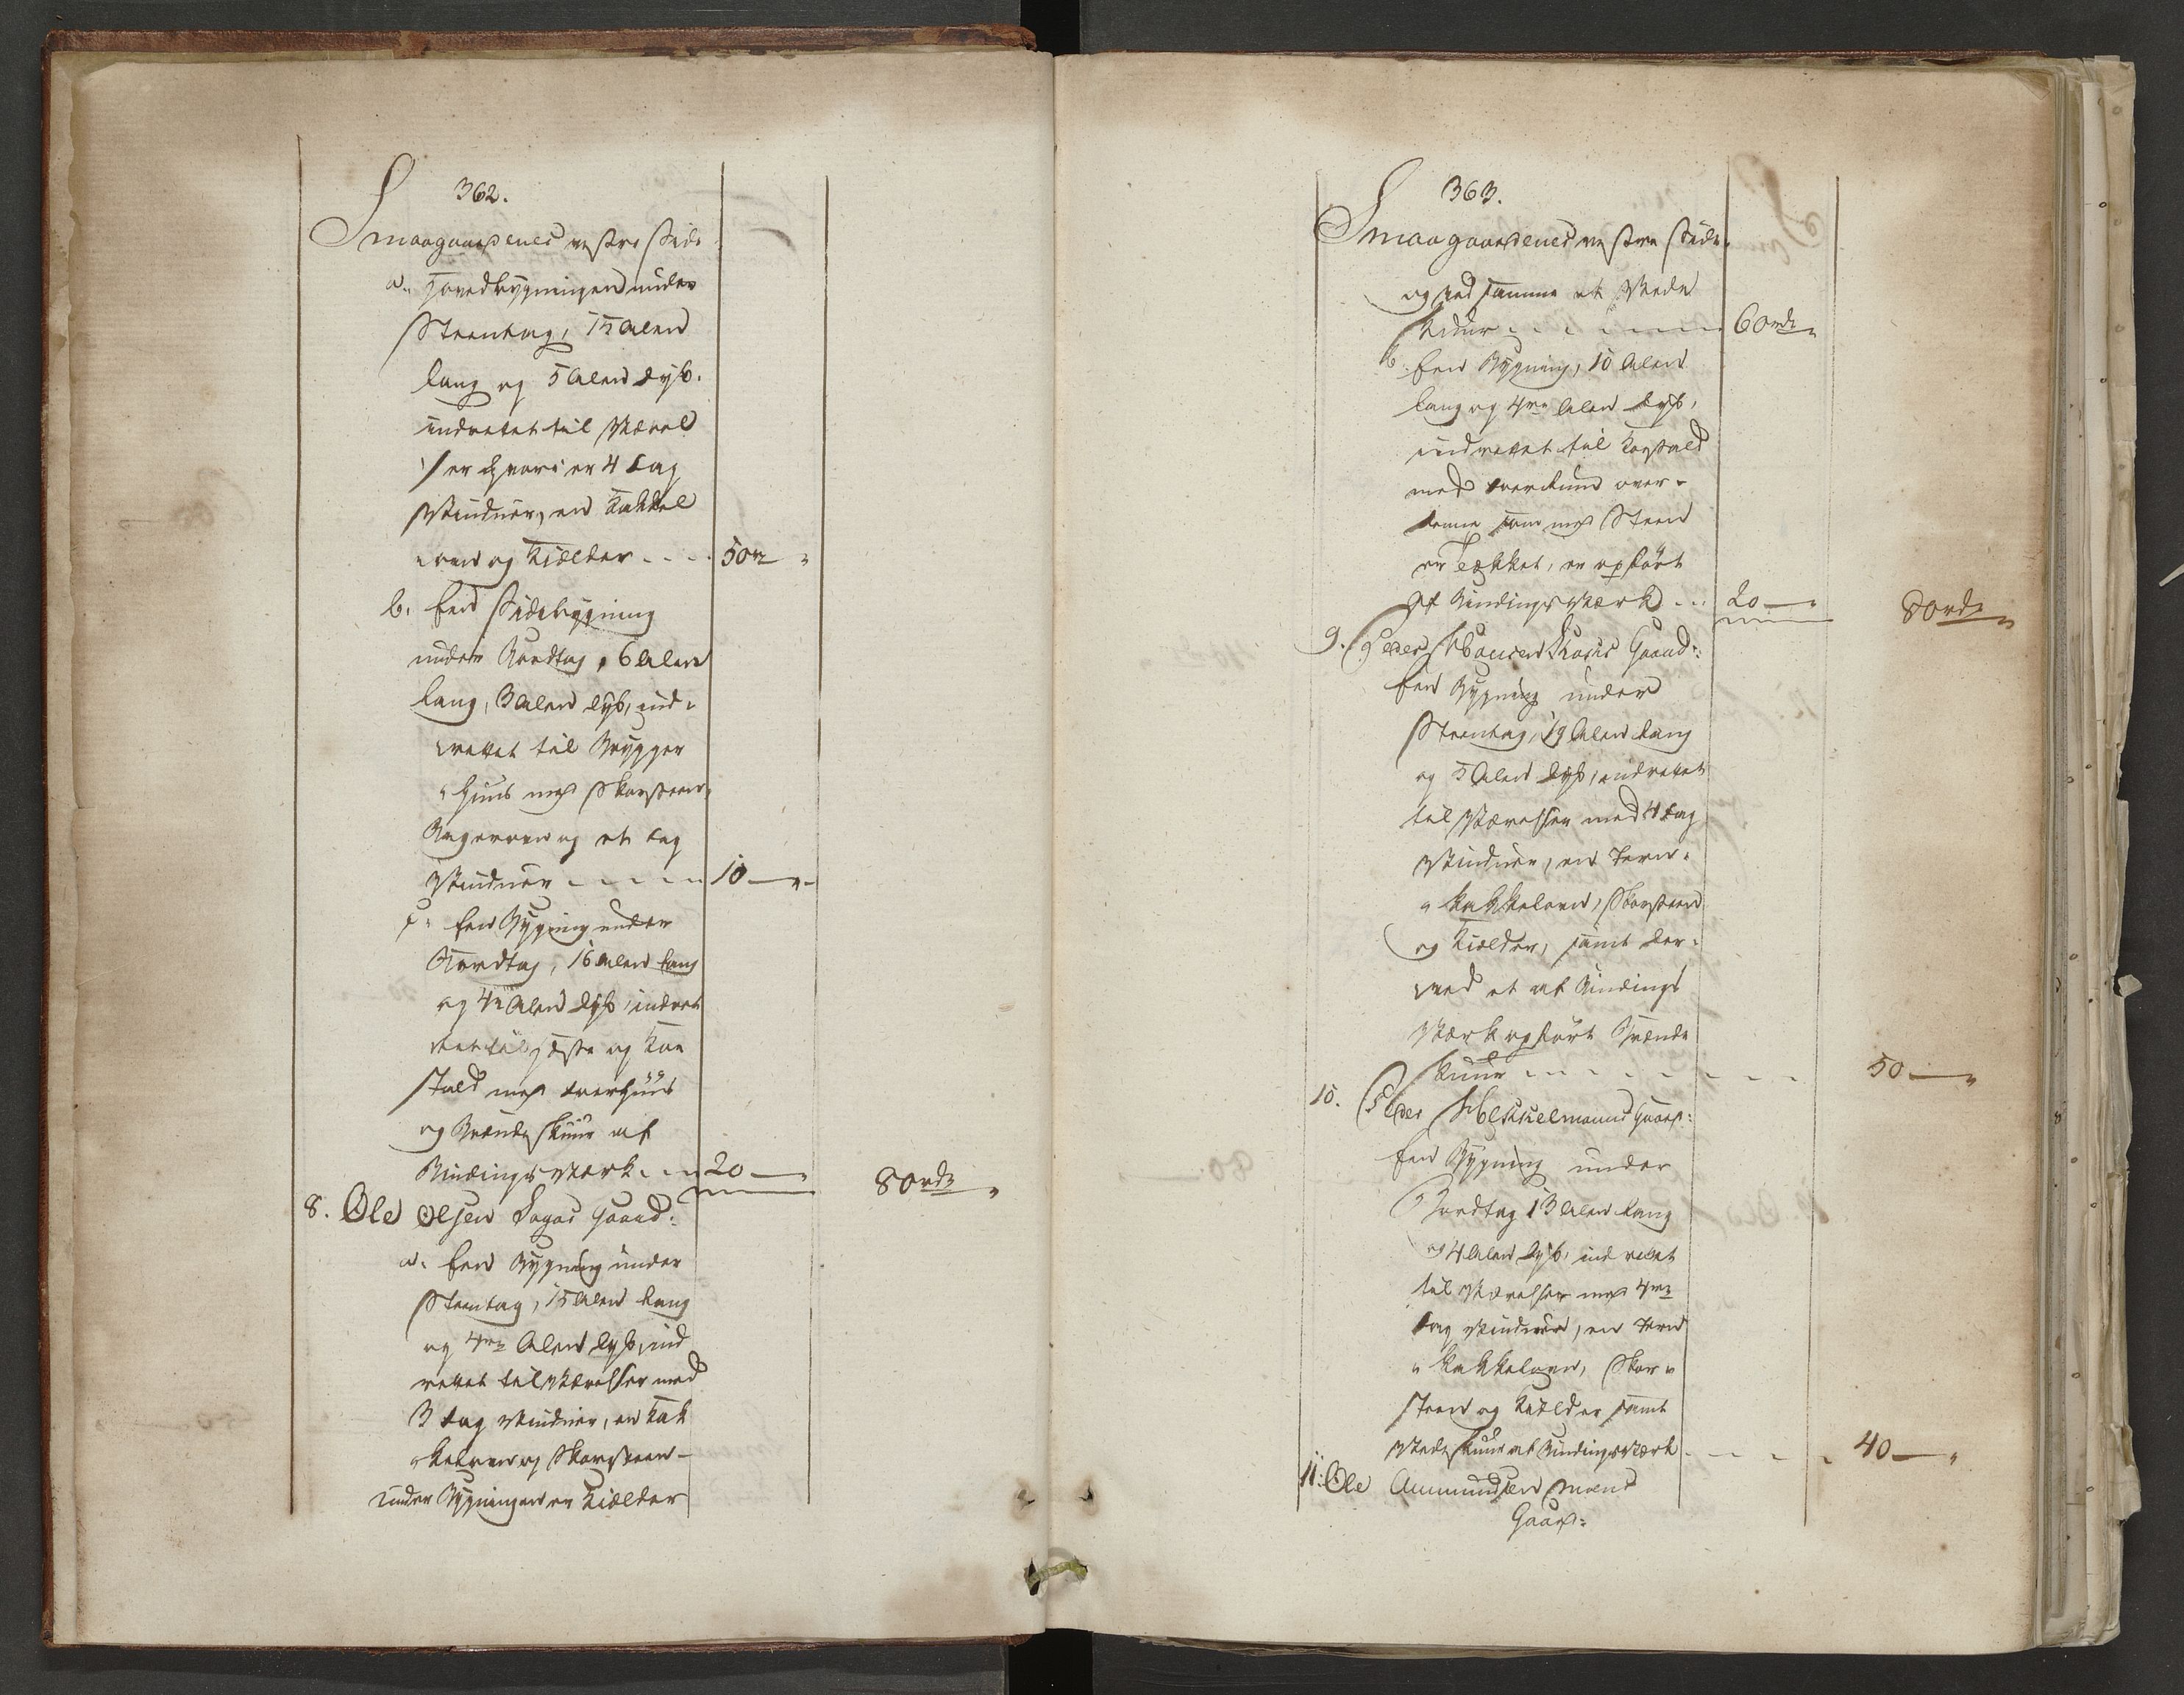 362.
Smaagaardenes vestre Side
a. Hovedbygningen under
Steentag, 15 Alen
lang og 5 Alen dyb.
indrettet til Værel
ser hvori er 4 Fag
Vinduer, en Kakkel
ovn og Kielder - - - 50 rd "
b. Een Sidebygning
under Bordtag, 6 Alen
lang, 3 Alen dyb, ind-
rettet til Brygger
huus med Skorsteen,
Bagerovn og et Fag
Vinduer - - - - - 10 — " -
c. Een Bygning under
Bordtag, 16 Alen lang
og 4re Alen dyb, indret
tet til Heste og Koe
stald med Foerhuus
og Brændeskuur af
Bindingsværk. - - 20 — " 80 rd "
8. Ole Olsen Gaard:
a. Een Bygning under
Steentag, 15 Alen lang
og 4re Alen dyb, ind
rettet til Værelser med
3 Fag Vinduer, en Kak
kelovn og Skorsteen -
under Bygningen er Kielder
363.
Smaagaardenes vestre Side.
og ved samme et Vede
skuur - - - - - - - 60 rd "
b. Een Bygning, 10 Alen
lang og 4re Alen dyb,
indrettet til Koestald
med Foerrum over-
denne som med Steen
er Tækket, er opført
af Bindingsværk - - - 20 — " 80 rd "
9. Peder Gaard:
Een Bygning under
Steentag, 19 Alen lang
og 5 Alen dyb, indrettet
til Værelser med 4 Fag
Vinduer, en Jern-
kakkelovn, Skorsteen
og Kielder, samt der-
ved et af Bindings
Værk opført Brænde
skuur - - - - - - - - 50 — "
10. Peder Gaard:
Een Bygning under
Bordtag 13 Alen lang
og 4 Alen dyb, ind rettet
til Værelser med 4re
Fag Vinduer, en Jern
kakkelovn, Skor-
steen og Kielder samt
Vedeskuur af Bindingsværk - - - - 40 — "
11. Ole Ammundsen Moens
Gaard: